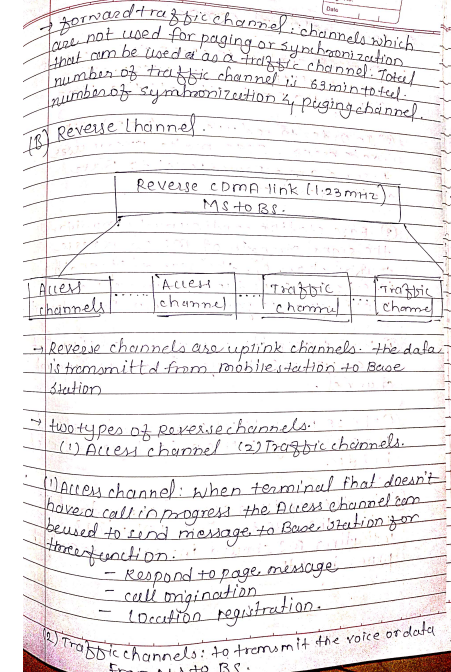 Date
→ forward traffic channel : channels which
are not used for paging or synchronization
that can be used as a traffic channel. Total
number of traffic channel is 63 min total
number of synhronization & paging channel.
(B) Reverse Channel.
Reverse CDMA link (1.23 mHz)
MS to BS.
Access
channels
Access
channel
Traffic
channel
Traffic
channel
→ Reverse channels are uplink channels. the data
is transmittd from mobile station to Base
station
→ two types of Reverse channels.
(1) Access channel (2) Traffic channels.
(1) Access channel : when terminal that doesn't
have a call in progress the Access channel can
be used to send message to Base station for
three function.
- Respond to page message
- call origination
- location registration.
(2) Traffic channels : to transmit the voice or data
from MS to BS.